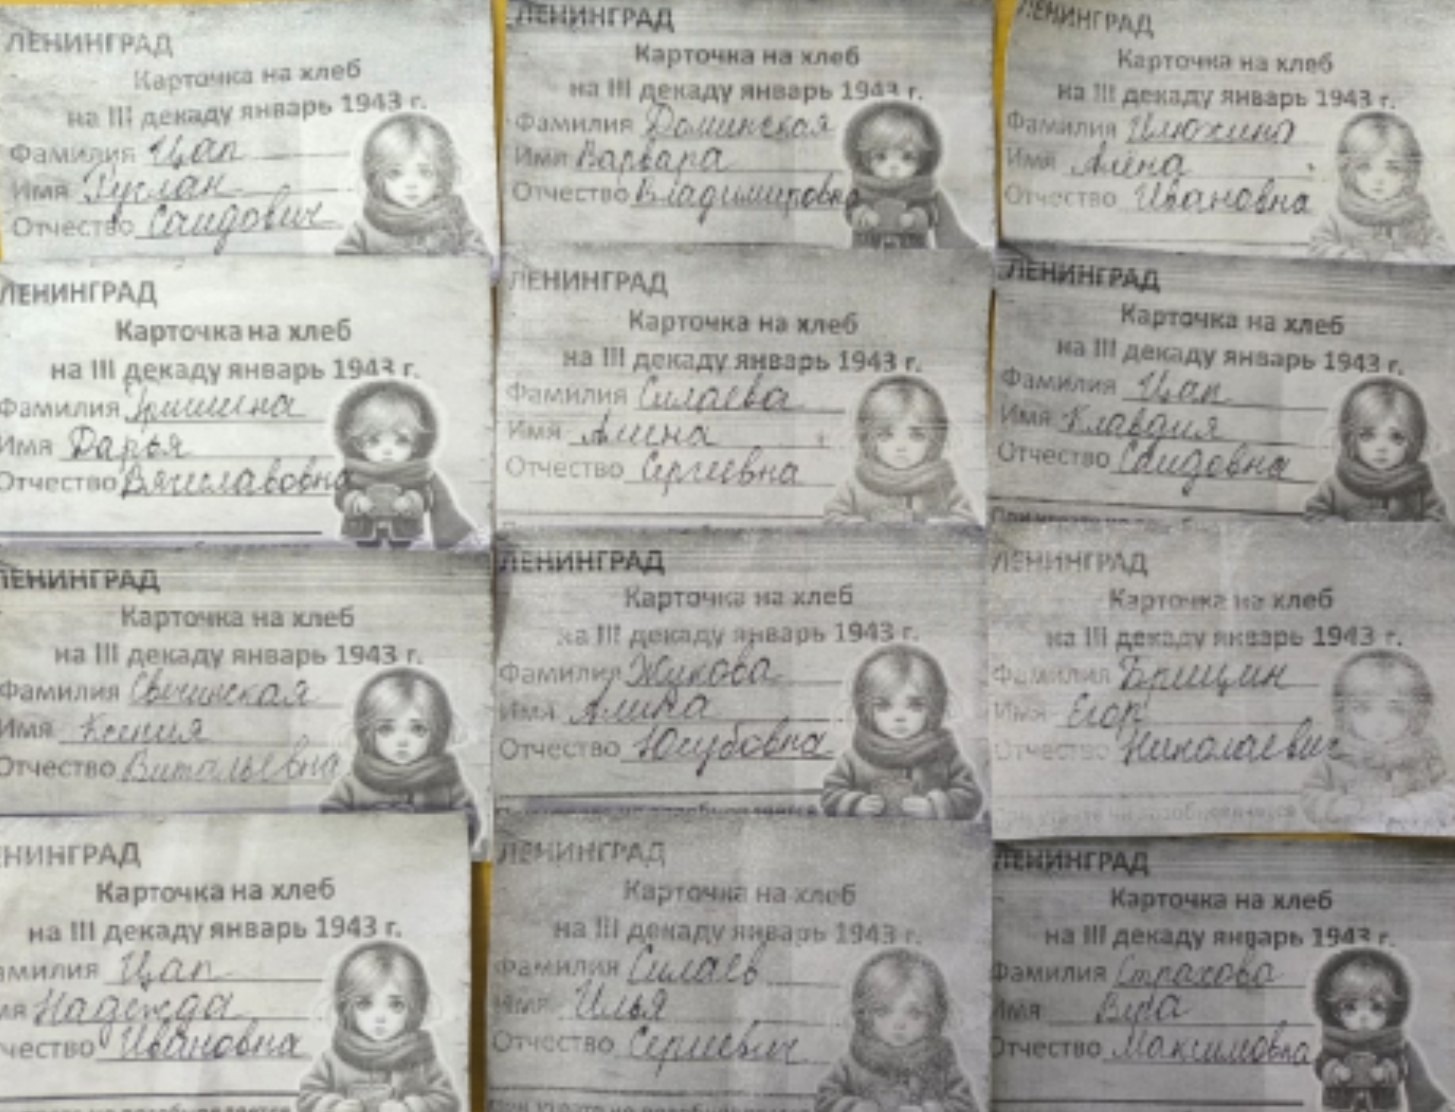 ЛЕНИНГРАД
Карточка на хлеб
на III декаду январь 1943 г.
Фамилия Цап
Имя Руслан
Отчество Саидович
ЛЕНИНГРАД
Карточка на хлеб
на III декаду январь 1943 г.
Фамилия Доминская
Имя Варвара
Отчество Владимировна
ЛЕНИНГРАД
Карточка на хлеб
на III декаду январь 1943 г.
Фамилия Илюхина
Имя Алена
Отчество Ивановна
ЛЕНИНГРАД
Карточка на хлеб
на III декаду январь 1943 г.
Фамилия Гришина
Имя Дарья
Отчество Вячеславовна
ЛЕНИНГРАД
Карточка на хлеб
на III декаду январь 1943 г.
Фамилия Силаева
Имя Алина
Отчество Сергеевна
ЛЕНИНГРАД
Карточка на хлеб
на III декаду январь 1943 г.
Фамилия Цап
Имя Клавдия
Отчество Саидовна
ЛЕНИНГРАД
Карточка на хлеб
на III декаду январь 1943 г.
Фамилия Свечинская
Имя Ксения
Отчество Витальевна
ЛЕНИНГРАД
Карточка на хлеб
на III декаду январь 1943 г.
Фамилия Жукова
Имя Алина
Отчество Юсубовна
ЛЕНИНГРАД
Карточка на хлеб
на III декаду январь 1943 г.
Фамилия Брицин
Имя Егор
Отчество Николаевич
ЕНИНГРАД
Карточка на хлеб
на III декаду январь 1943 г.
амилия Цап
мя Надежда
чество Ивановна
ЛЕНИНГРАД
Карточка на хлеб
на III декаду январь 1943 г.
Фамилия Силаев
Имя Илья
Отчество Сергеевич
ЛЕНИНГРАД
Карточка на хлеб
на III декаду январь 1943 г.
Фамилия Страхова
Имя Вера
Отчество Максимовна